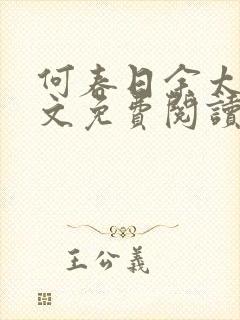 何春日余大
文免費閱讀
王公義